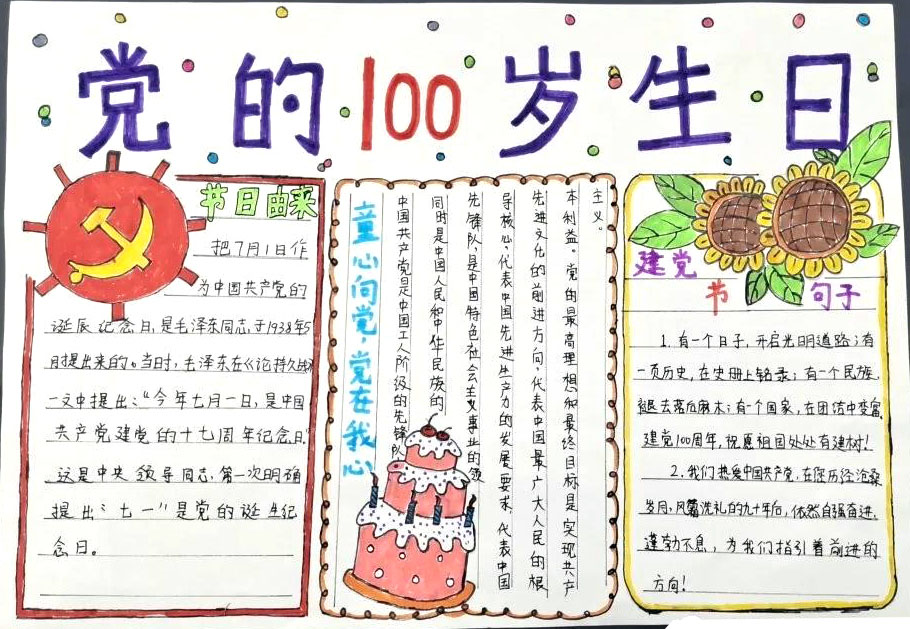 党的100岁生日
节日由来
把7月1日作
为中国共产党的
诞辰纪念日,是毛泽东同志于1938年5
月提出来的。当时,毛泽东在《论持久战》
一文中提出:“今年七月一日,是中国
共产党建党的十七周年纪念日”
这是中央领导同志第一次明确
提出“七一”是党的诞生纪
念日。
童心向党·党在我心
中国共产党是中国工人阶级的先锋队
同时是中国人民和中华民族的
先锋队,是中国特色社会主义事业的领
导核心,代表中国先进生产力的发展要求,代表中国
先进文化的前进方向,代表中国最广大人民的根
本利益。党的最高理想和最终目标是实现共产
主义。
建党
节句子
1.有一个日子,开启光明道路;有
一页历史,在史册上铭录;有一个民族,
褪去落后麻木;有一个国家,在团结中变富。
建党100周年,祝愿祖国处处有建树!
2.我们热爱中国共产党,在您历经沧桑
岁月,风霜洗礼的九十年后,依然自强奋进,
蓬勃不息,为我们指引着前进的
方向!